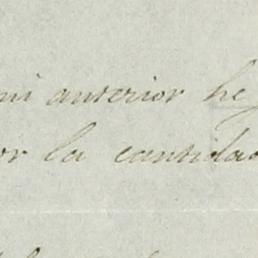 mi anterior he
or la cantidad